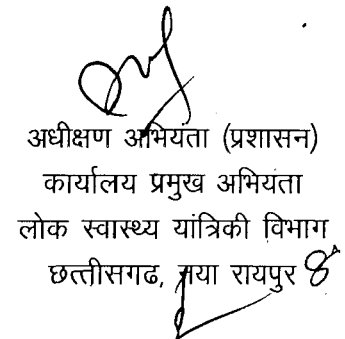 अधीक्षण अभियंता (प्रशासन)
कार्यालय प्रमुख अभियंता
लोक स्वास्थ्य यांत्रिकी विभाग
छत्तीसगढ, नया रायपुर